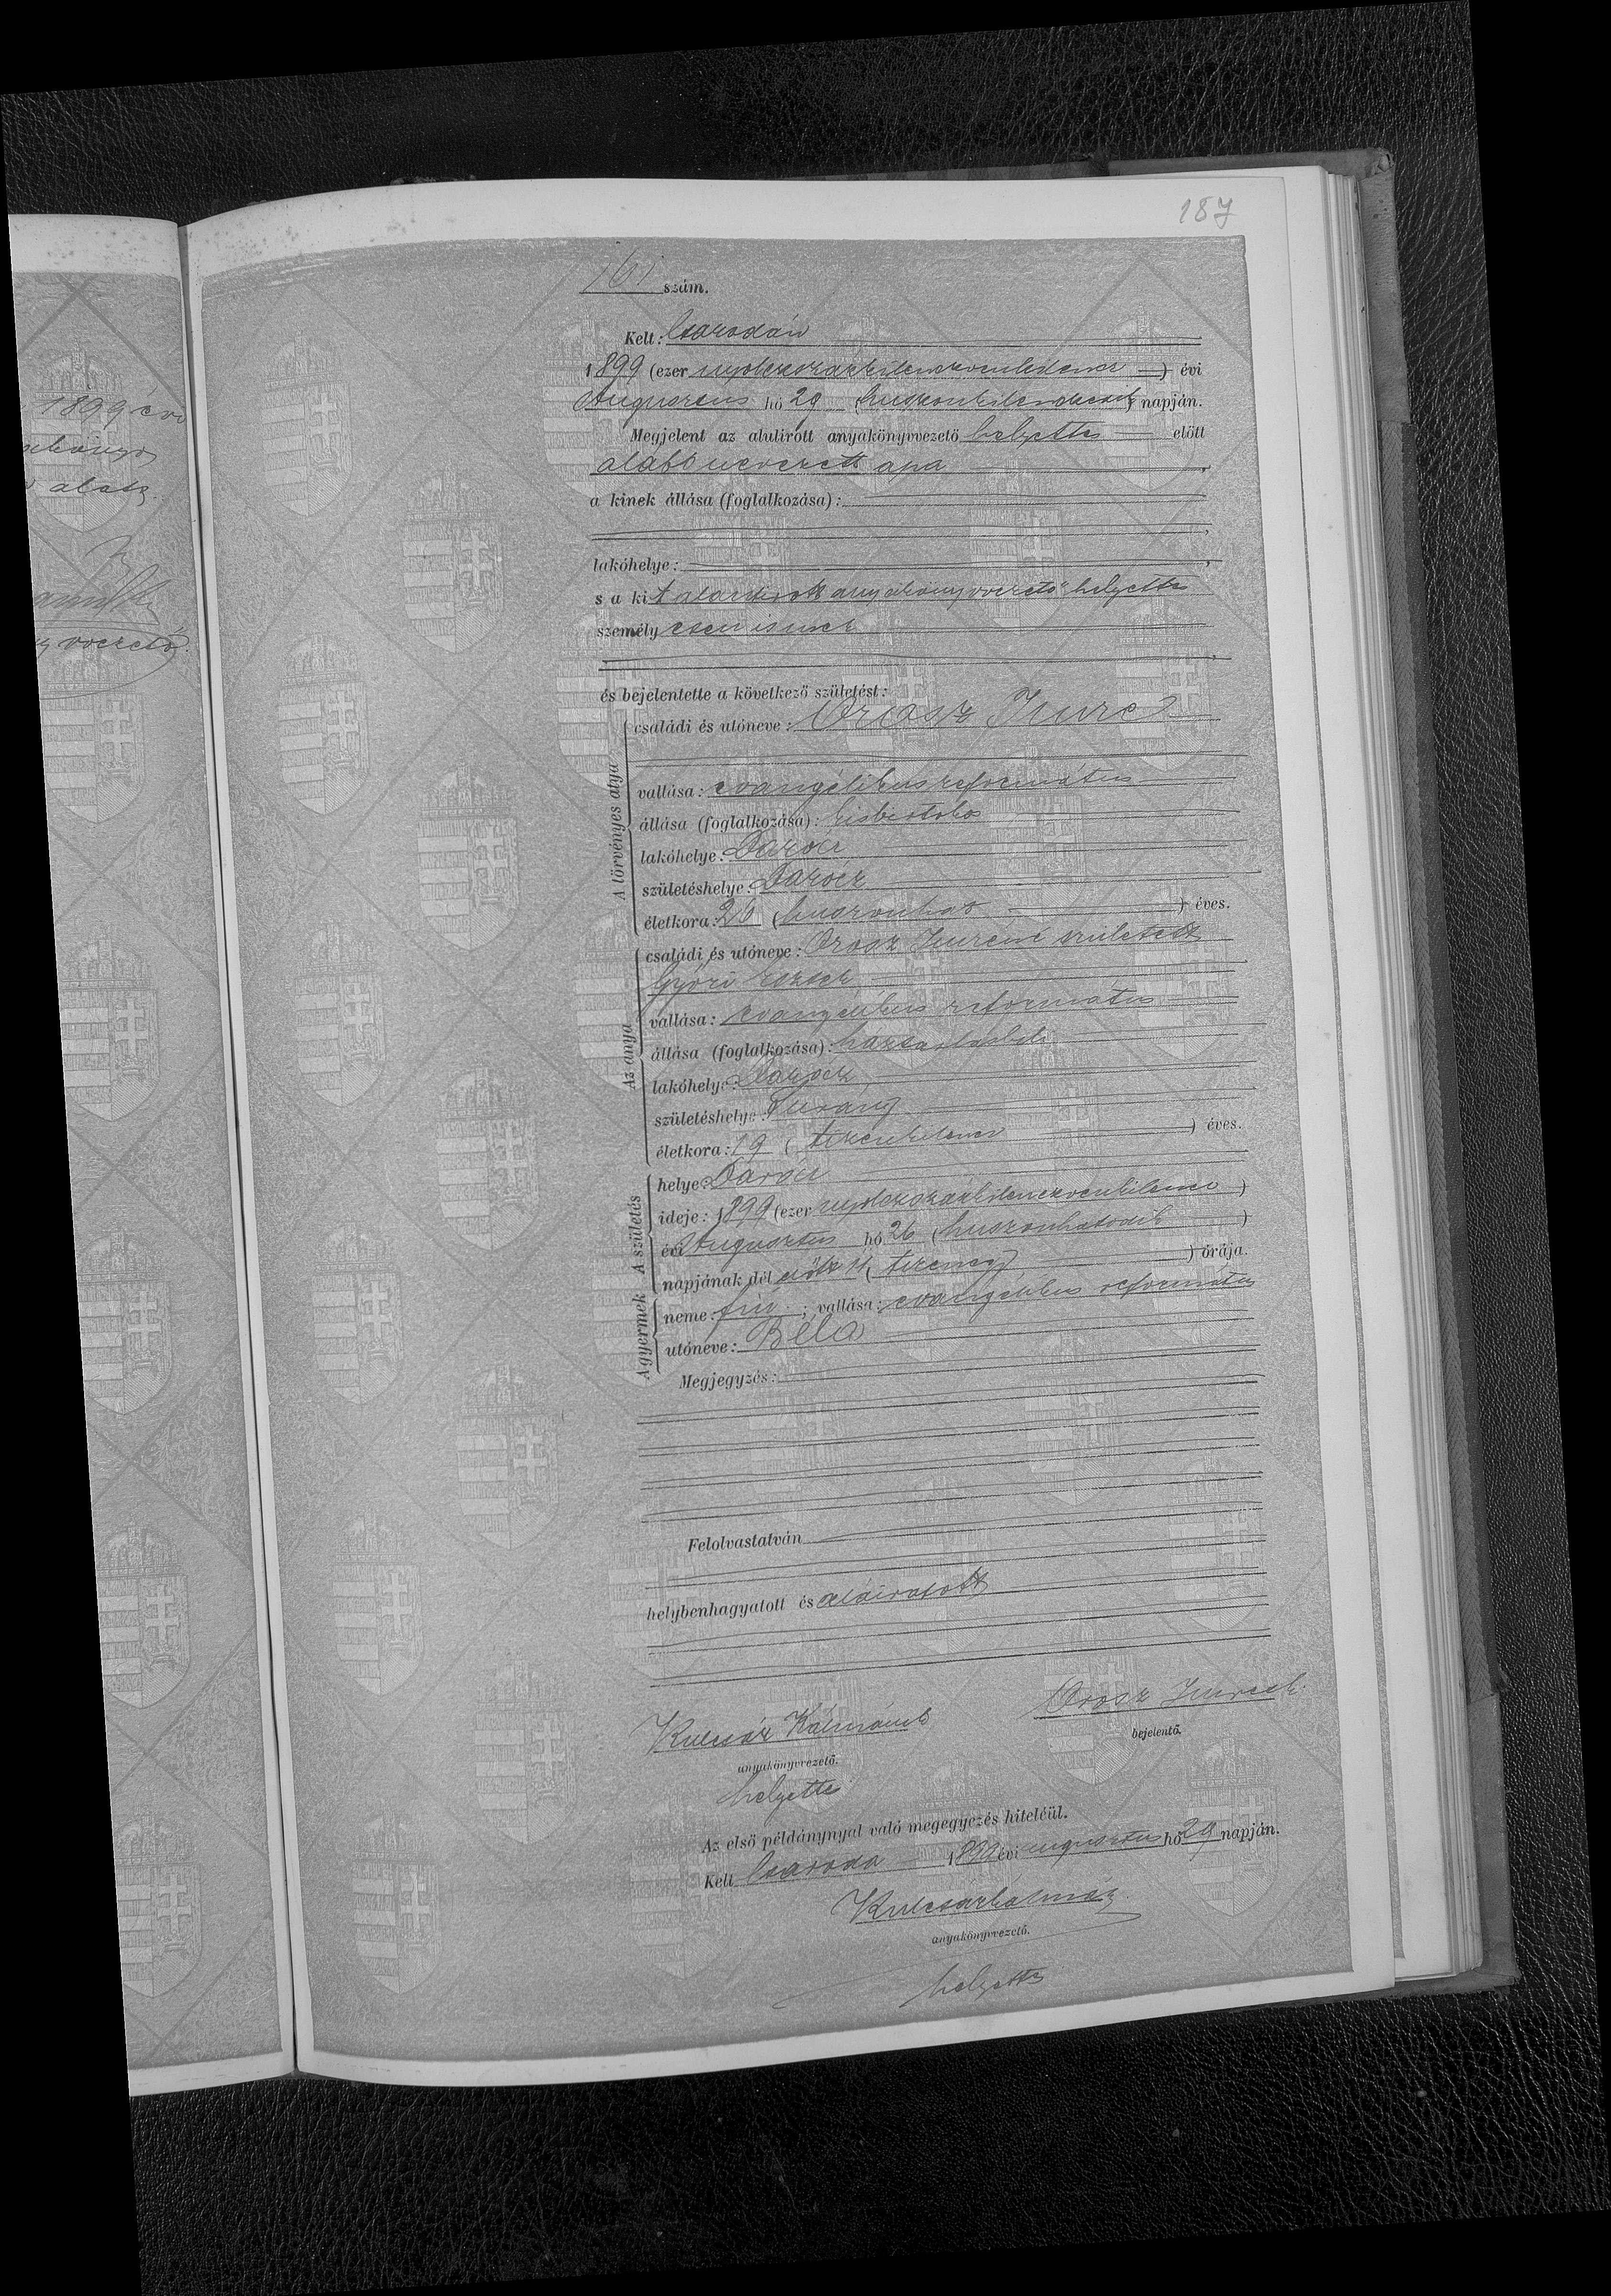 187
161 szám.
Kelt: Csarodán
1899 (ezer nyolczszázkilenczvenkilencz) évi
Augusztus hó 29 (huszonkilenczedik) napján.
Megjelent az alulirott anyakönyvvezető helyettes előtt
alább nevezett apa,
a kinek állása (foglalkozása):
lakóhelye:
s a kit alantirott anyakönyvvezető helyettes
személyesen ismer
és bejelentette a következő születést:
A törvényes atya
családi és utóneve: Orosz Imre
vallása: evangélikus református
állása (foglalkozása): kisbirtokos
lakóhelye: Darócz
születéshelye: Darócz
életkora: 26 (huszonhat) éves.
Az anya
családi és utóneve: Orosz Imréné született
Győri
vallása: evangelikus református
állása (foglalkozása): háztartásbeli
lakóhelye: Darócz
születéshelye:
életkora: 19 (tizenkilencz) éves.
A születés
helye: Darócz
ideje: 1899 (ezer nyolczszázkilenczvenkilencz)
évi Augusztus hó 26 (huszonhatodik)
napjának dél előtt 11 (tizenegy) órája.
A gyermek
neme: fiú; vallása: evangélikus református
utóneve: Béla
Megjegyzés:
Felolvastatván
helybenhagyatott és aláíratott
Kulcsár Kálmán Orosz Imre
anyakönyvvezető. bejelentő.
helyettes
Az első példánynyal való megegyezés hiteléül.
Kelt Csaroda 1899 évi augusztus hó 29 napján.
Kulcsár Kálmán
anyakönyvvezető.
helyettes
1899 évi
alatt